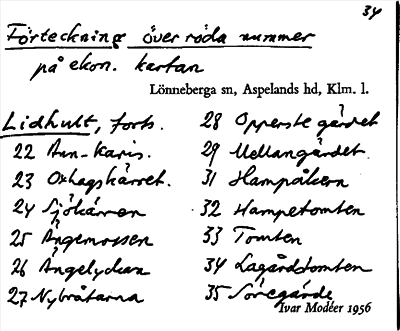 34
Förteckning över röda nummer
på ekon. kartan
Lönneberga sn, Aspelands hd, Klm. l.
Lidhult, forts.
22 Ann-Karis.
23 Oxhagskärret.
24 Sjökärren
25 Ängemossen
26 Ängelyckan
27 Nybråtarna
28 Opperste gärdet
29 Mellangärdet
31 Hampåkern
32 Hampetomten
33 Tomten
34 Lagårdstomten
35 Söregärde
Ivar Modéer 1956